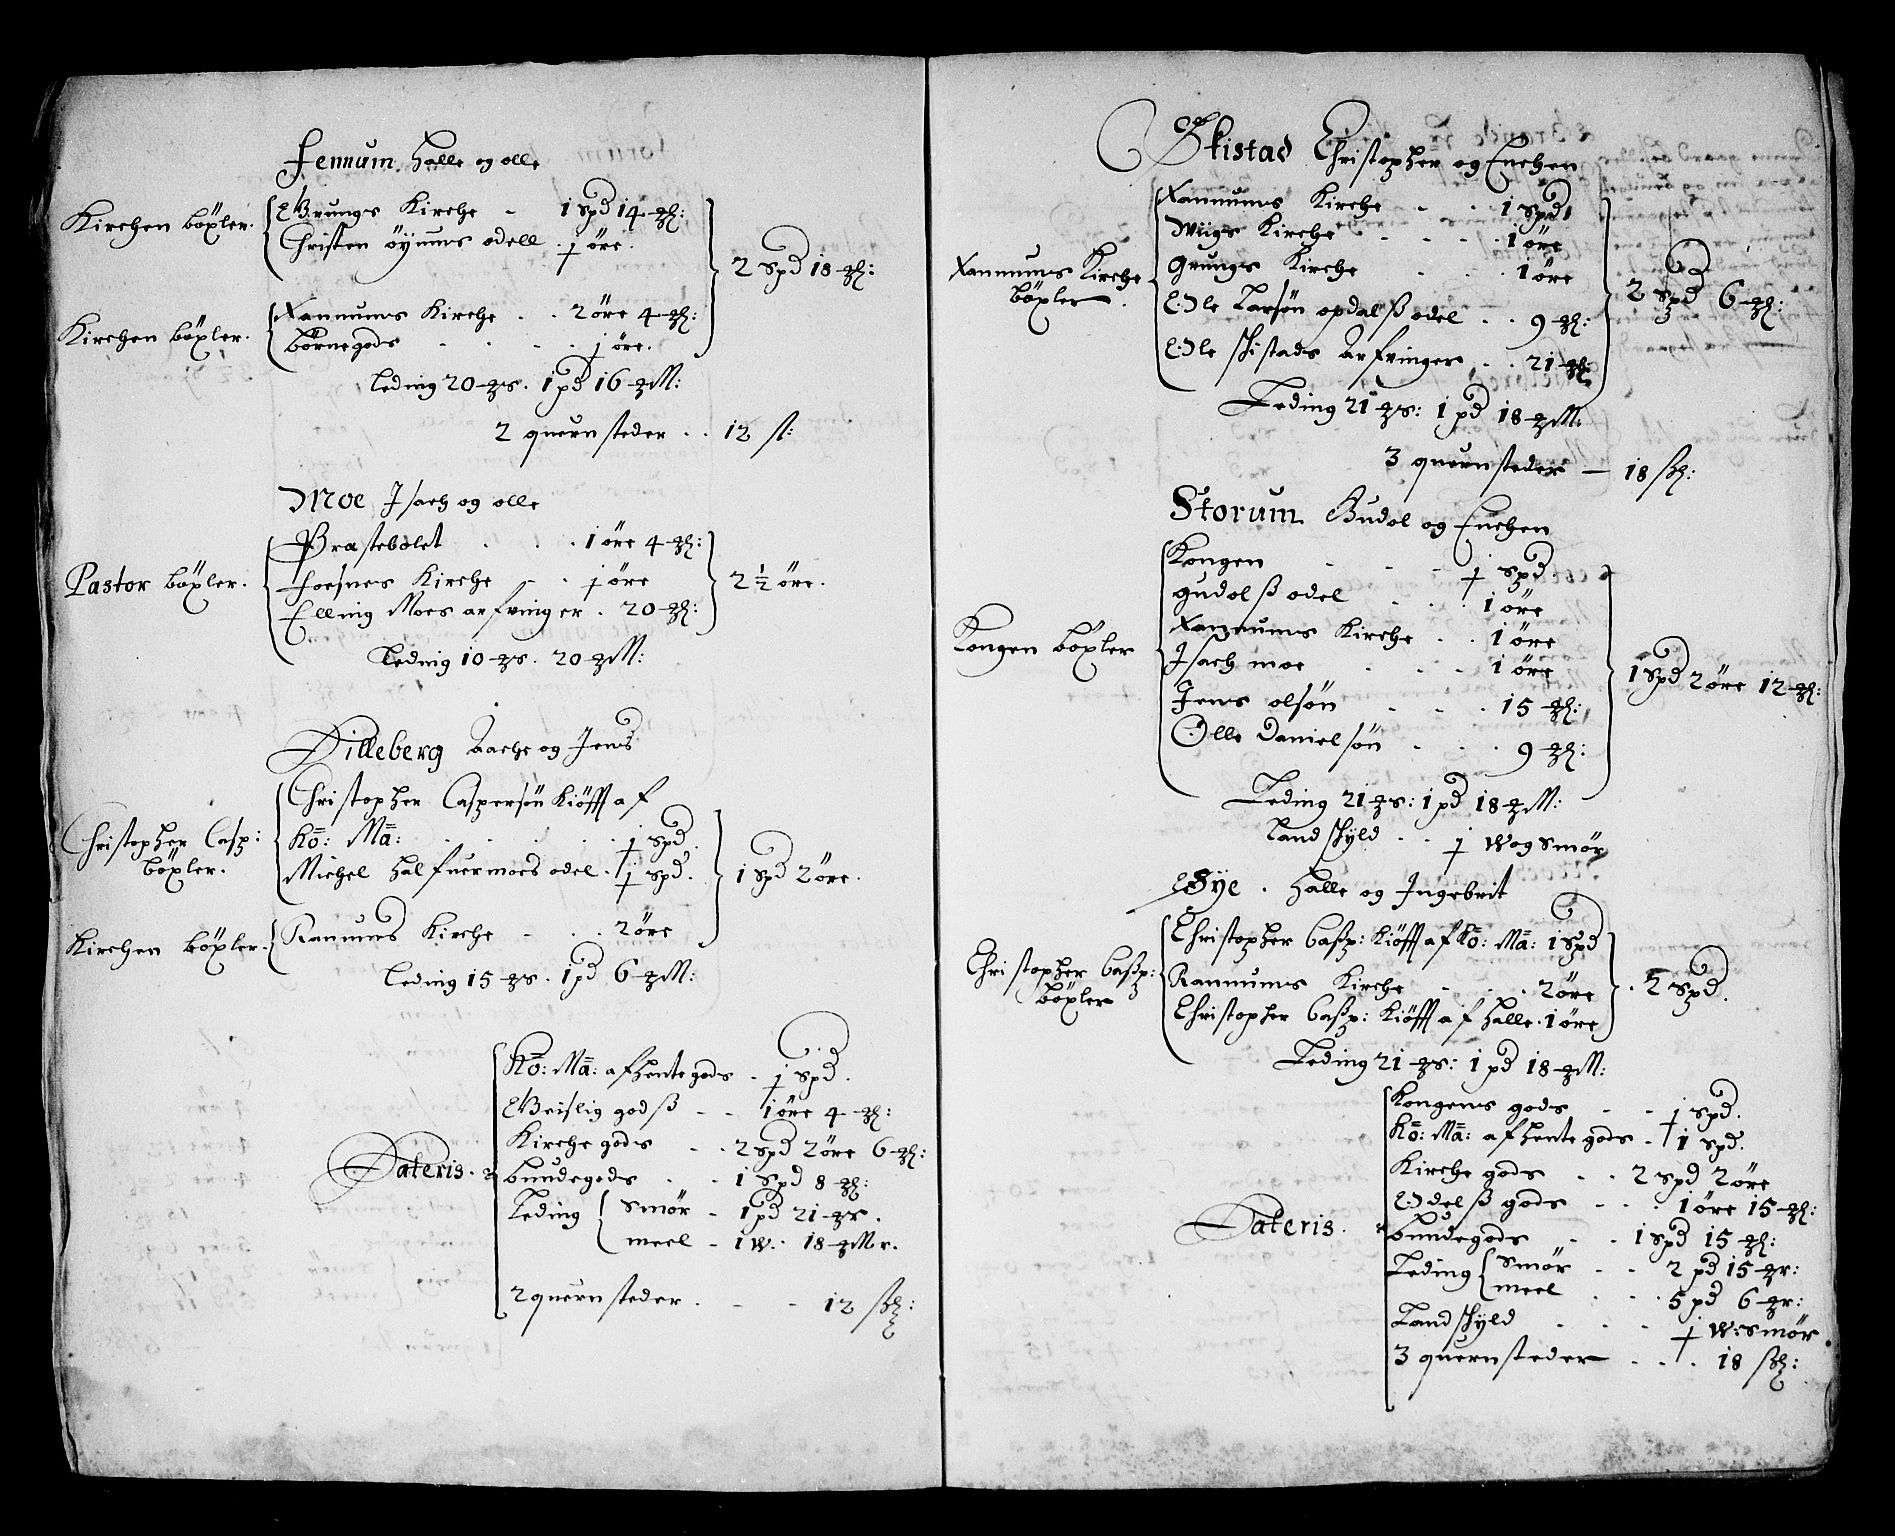 Femum Halle og olle
Kirchen böxler.
Grungs Kirche - 1 spd 14 ℳ:
Christen öÿnums odell . ј öre.
2 spd 18 ℳ:
Kirchen böxler.
Rannums Kirche . . 2 öre 4 ℳ:
börnegods . . . . ј öre.
Leding 20 ℳs. 1 pd 16 ℳM:
2 quernsteder . . 12 sl:
Moe Isach og olle
Pastor böxler.
Præstebolet . . . 1 öre 4 ℳ:
foesnes Kirche - . ј öre
Elling Moes arfvinger . 20 ℳ:
2 ½ öre.
Leding 10 ℳs. 20 ℳM:
Dilleberg Aache og Jens
Christopher Casp:
böxler.
Christopher Caspersön Kiöfft af
Kō: Mā: . . . . . ј spd.
Michel halfuermoes odel . ј spd.
1 spd 2 öre.
Kirchen böxler.
Ranums Kirche - . . 2 öre
Leding 15 ℳs. 1 pd 6 ℳM:
Dateris.
Kō: Mā: afhente gods . ј spd.
Geislig godß - - 1 öre 4 ℳ:
Kirche gods . . 2 spd 2 öre 6 ℳ:
bundegods . . 1 spd 8 ℳ:
Leding smör - 1 pd 21 ℳr.
meel - 1 w. 18 ℳMr.
2 quernsteder . - - 12 ſſl:
Skistad Christopher og Enchen
Rannums Kirche
böxler.
Rannums Kirche - . 1 spd
Wiigs Kirche . . . . 1 öre
grungs Kirche . . . 1 öre
Ole Larsön opdalß odel . . 9 ℳ:
Ole skistads Arfvinger . . 21 ℳ:
2 spd 6 ℳ:
Leding 21 ℳs: 1 pd 18 ℳM:
3 quernsteder — 18 ſſl:
Storum Gudol og Enchen
Kongen böxler
Kongen . . . ј spd
gudolß odel . . . 1 öre
Rannums Kirche . . 1 öre
Isach moe . . . 1 öre
Jens olsön . . . 15 ℳ:
Olle Danielsön . . . 9 ℳ:
1 spd 2 öre 12 ℳ:
Leding 21 ℳs: 1 pd 18 ℳM:
Landskÿld . . ј Wog smör
Bÿe . Halle og Ingebrit
Christopher Caßp:
böxler
Christopher Caßp: Kiöfft af Kō: Mā: 1 spd
Rannums Kirche . . . 2 öre
Christopher Caßp: Kiöfft af halle . 1 öre
. 2 spd.
Leding 21 ℳs: 1 pd 18 ℳM:
Dateris.
Kongens gods - - ј spd.
Kō: Mā: afhente gods . 1 spd.
Kirche gods . . 2 spd 2 öre
Odelß gods - . . 1 öre 15 ℳ:
bundegods . . 1 spd 15 ℳ:
Leding smör . . 2 pd 15 ℳr:
meel . . . 5 pd 6 ℳr:
Landskÿld . . . ј W: smör
3 quernsteder . . . 18 ſſl: